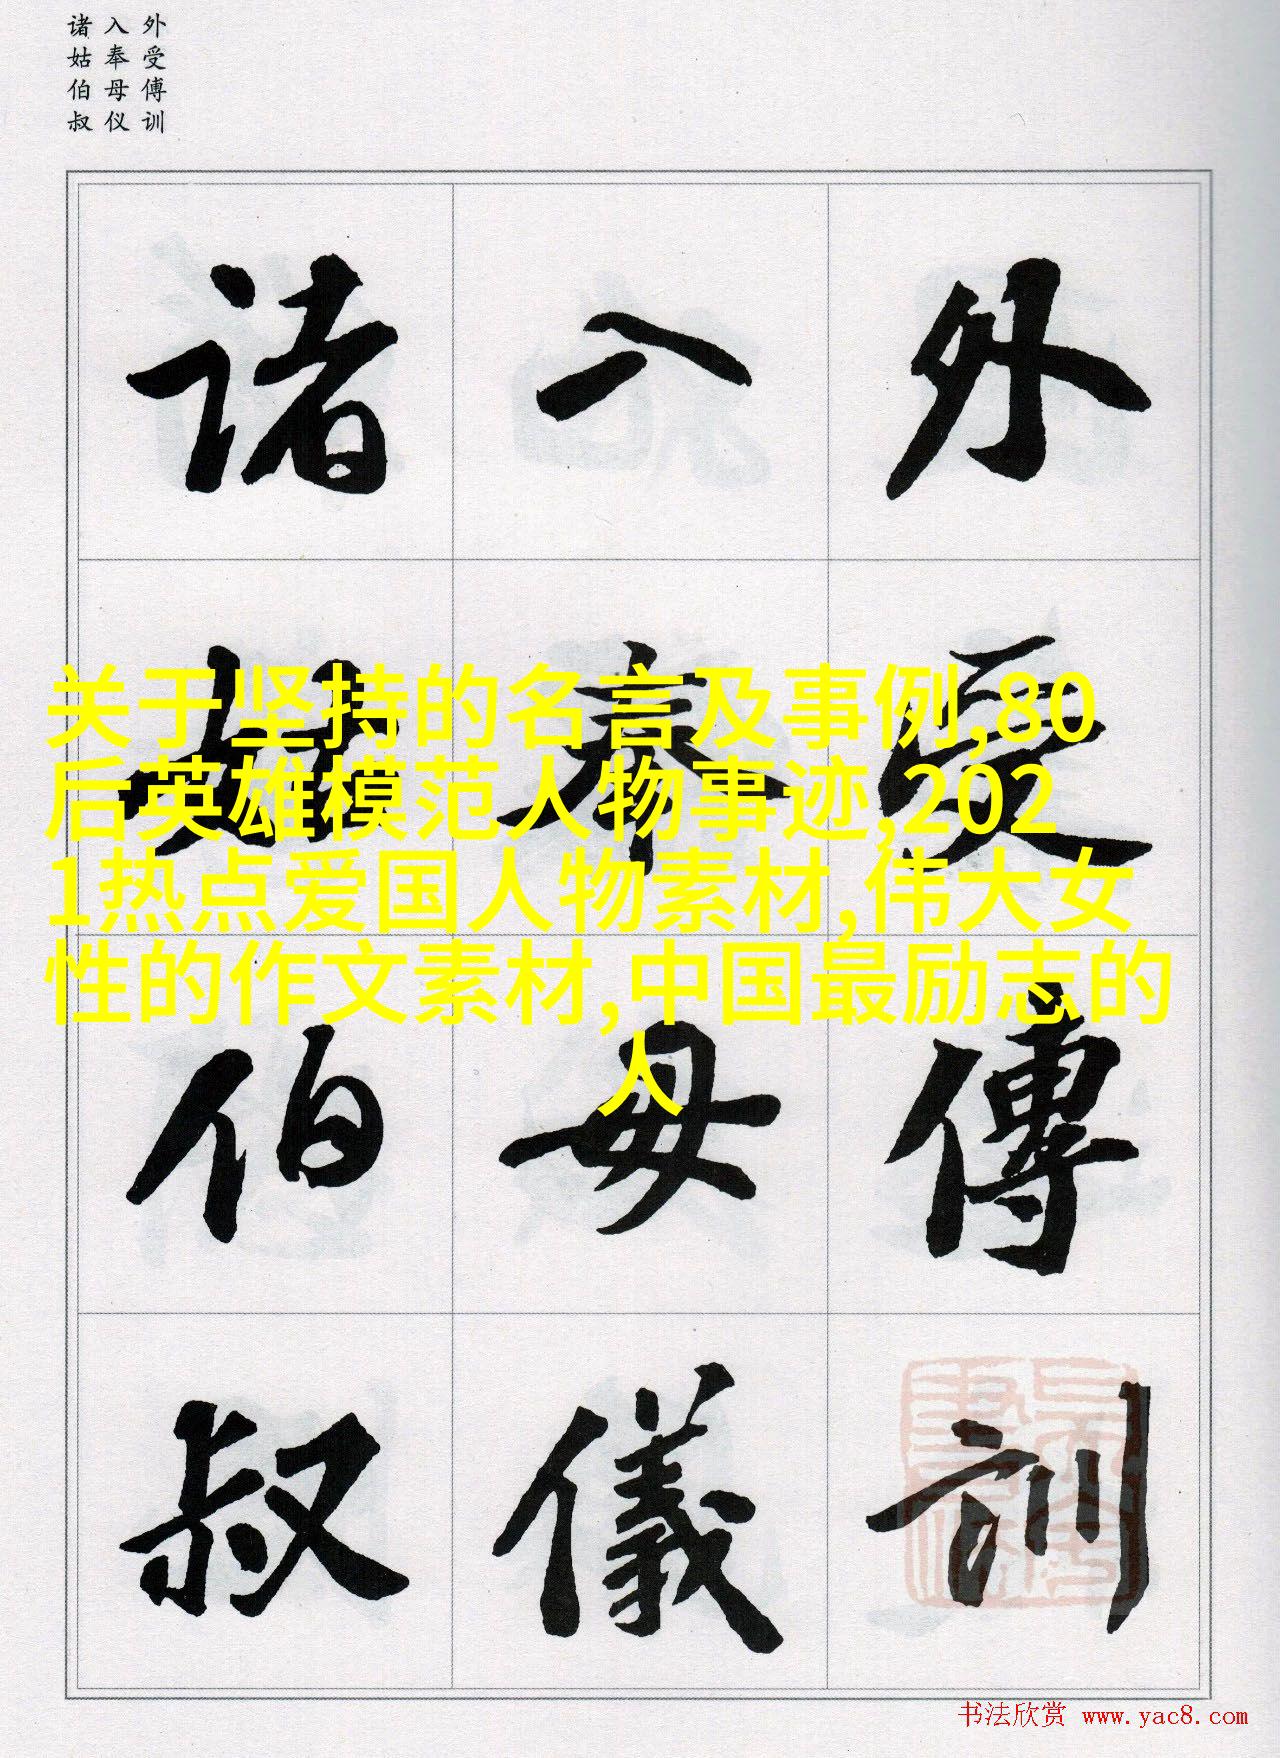 外受傅训
入奉母仪
诸姑伯叔
外受傅訓
入奉母儀
诸姑伯叔
关于坚持的名言及事例,80
后英雄模范人物事迹,202
1热点爱国人物素材,伟大女
性的作文素材,中国最励志的
人
书法欣赏 www.yac8.com